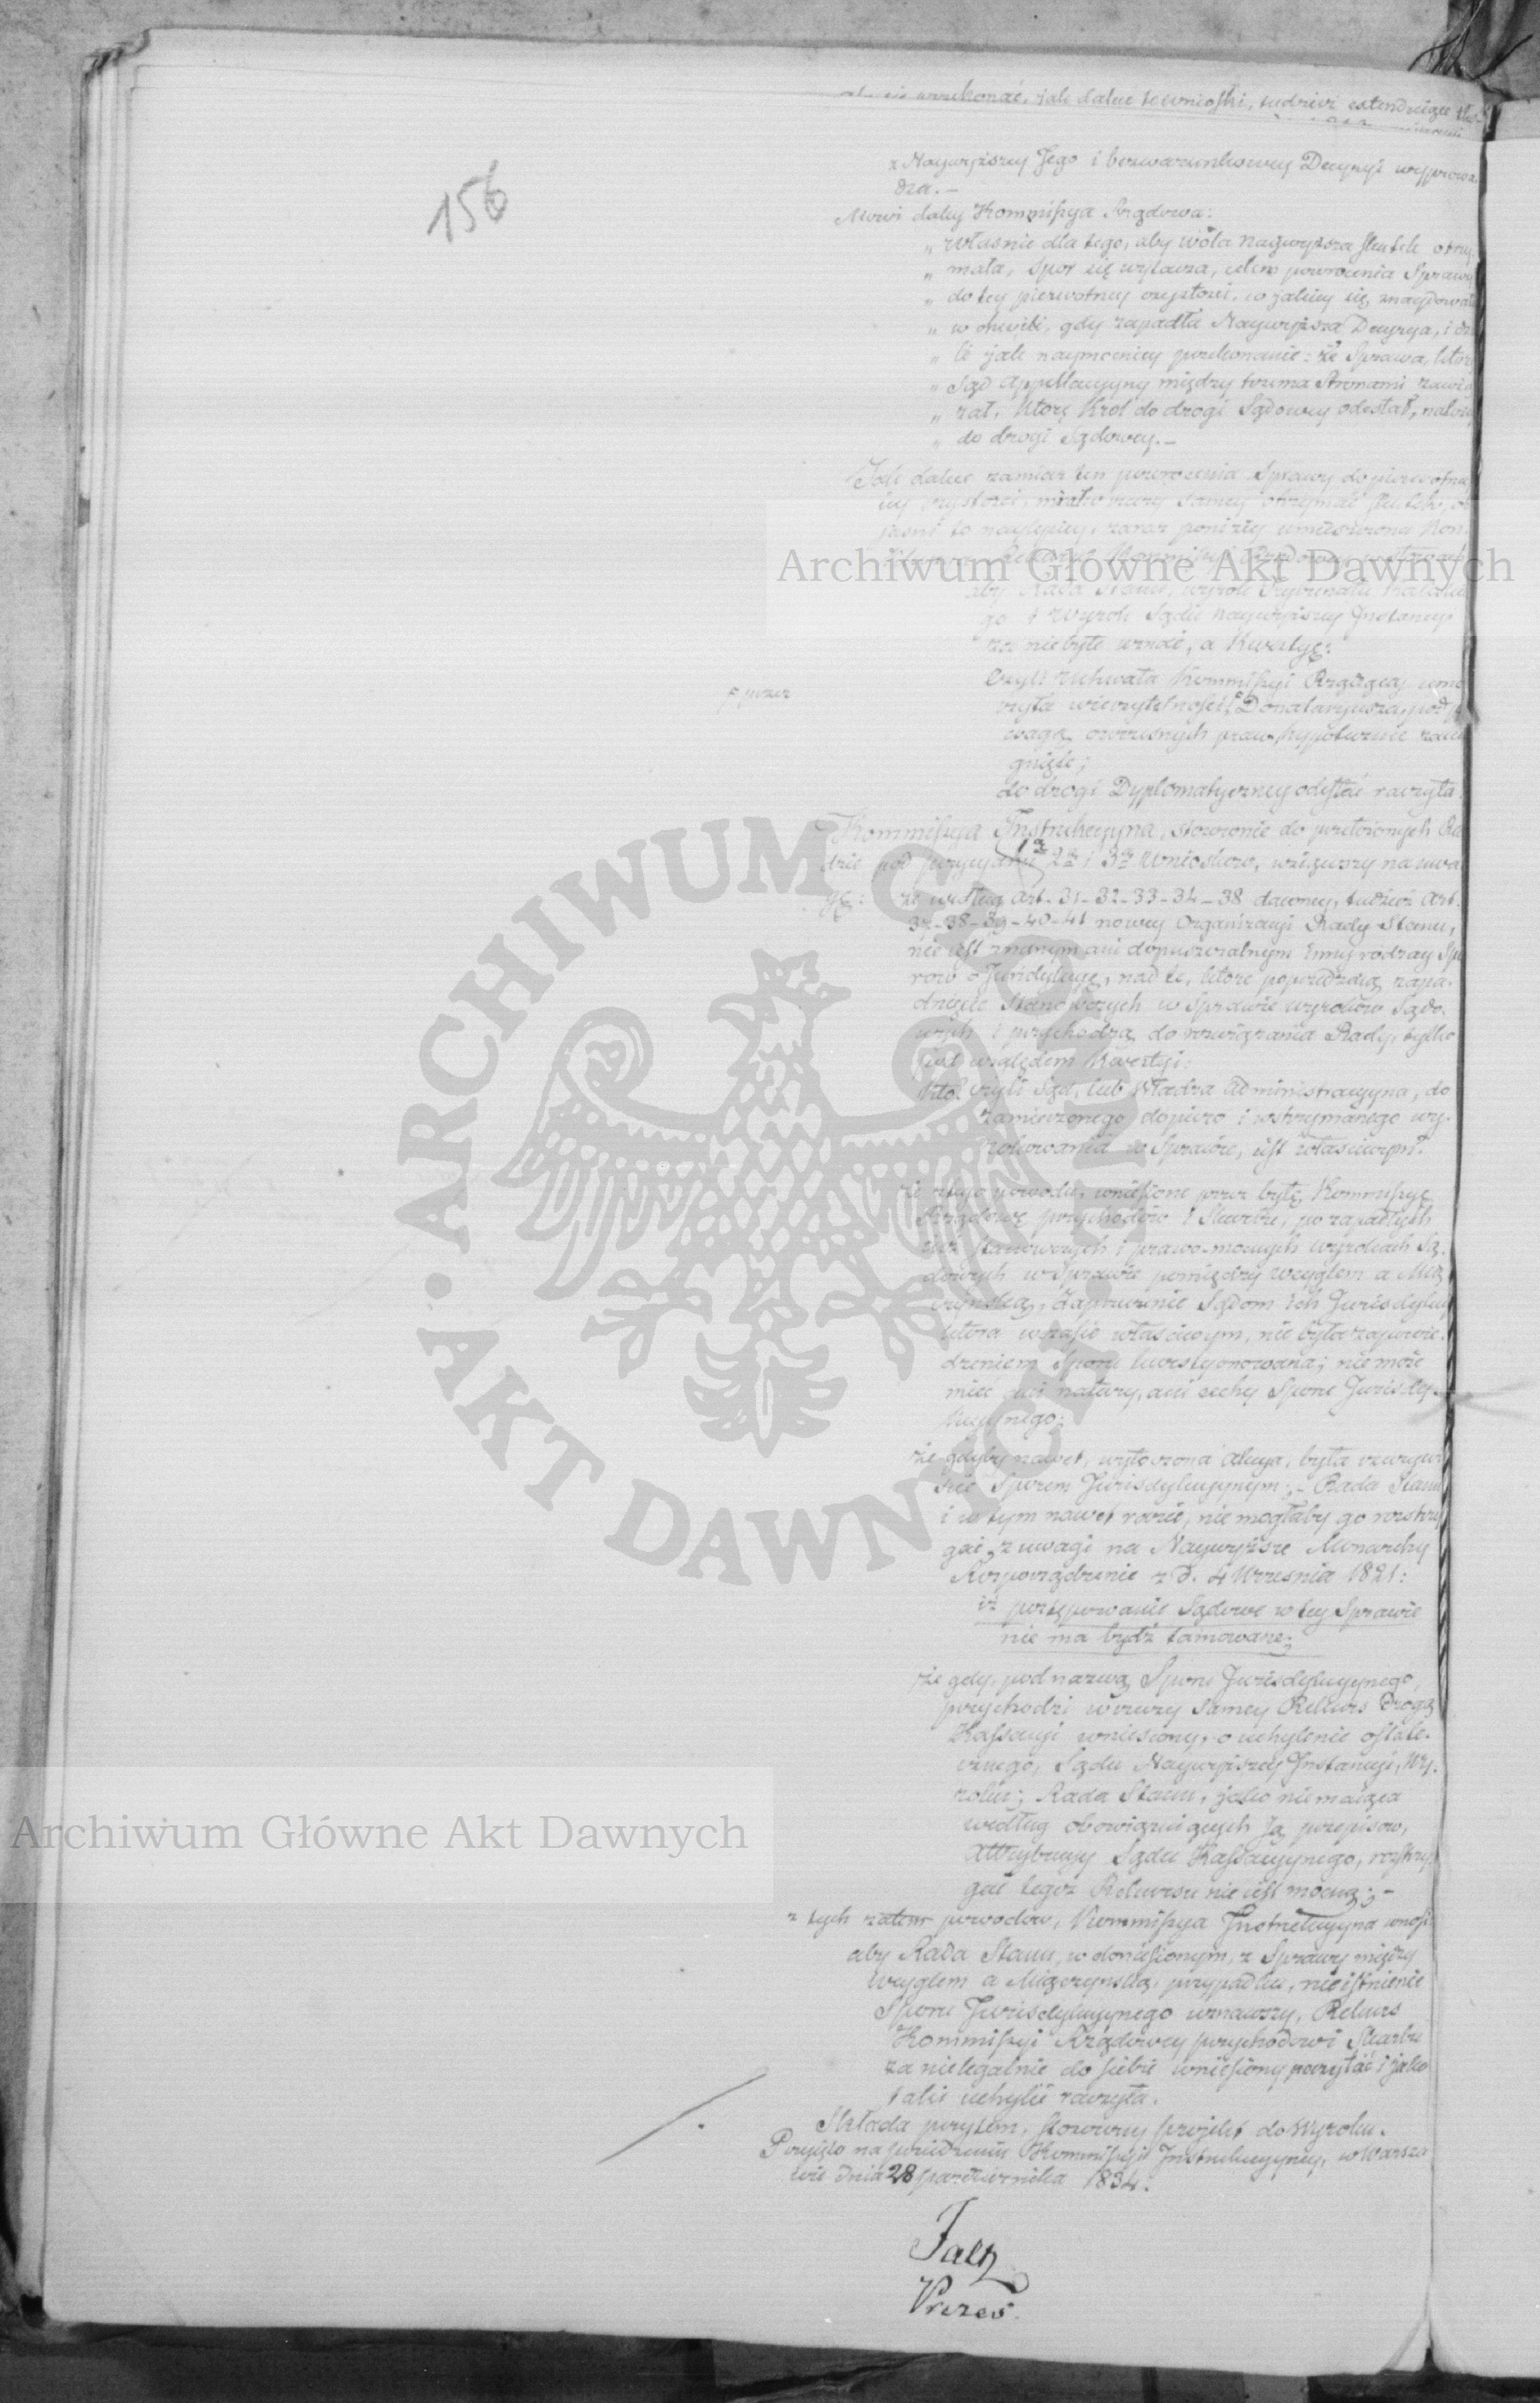 156
przekonać, jak dalece te wnioski, tudzież
z Naywyższey Jego i bezwarunkowey Decyzyi wyprowa-
dza.-
Mowi daley Kommissya Rządowa:
„ własnie dla tego, aby wola naywyższa skutek otrzy-
„ mała, spor się wytacza, celem powrocenia Sprawy
„ do tey pierwotney czystości, w jakiey się znaydowała
„ w chwili, gdy zapadła Naywyższa Decyzya, i
„ jak naymocniey przekonanie: że Sprawa, którą
„ Sąd Appellacyyny między trzema Stronami zawią-
„ zał, którą Krol do drogi Sądowey odesłał, należy
„ do drogi Sądowey.-
Jak dalece zamiar ten powrocenia Sprawy do pierwotney
iey czystości, miał w rzeczy samey otrzymać skutek,
to naylepiey, zaraz poniżey umieszczona
Kommissyi Rządowey
aby Rada Stanu, wyrok Trybunału
go i Wyrok Sądu Naywyższey Instancyi
za niebyłe uznać, a Kwestyę:
czyli Uchwała Kommissyi Rządzącey
wierzytelności Donataryusza, pod
wagą owczesnych praw hypotecznie zacią-
gnięte;
do drogi Dyplomatyczney odesłać raczyła.
F przez
Kommissya Instrukcyyna, stosownie do przełożonych Ra-
dzie pod 1m 2m i 3m Wnioskow, wziąwszy na uwa-
gę: że według Art. 31-32-33-34-38 dawney, tudzież Art.
37-38-39-40-41 nowey Organizacyi Rady Stanu,
nie iest znanym ani dopuszczalnym inny rodzay Spo-
row o Jurisdykcyę, nad te, które poprzedzaią zapa-
dnięcie stanowczych w Sprawie wyrokow Sądo-
wych i przychodzą do rozwiązania Rady, tylko
pod względem Kwestyi:
Kto? czyli Sąd, lub Władza Administracyyna, do
zamierzonego dopiero i wstrzymanego wy-
rokowania w Sprawie, iest własciwym?
że z tego powodu, wniesione przez byłę Kommissyę
Rządowę przychodow i Skarbu, po zapadłych
już stanowczych i prawo-mocnych wyrokach Są-
dowych w Sprawie pomiędzy Weyglem a Mią-
czyńską, zaprzeczenie Sądom ich Jurisdykcyi
która w czasie własciwym, nie była zapowie-
dzeniem Sporu kwestyonowana; nie może
mieć ani natury, ani cechy Sporu Jurisdy-
kcyynego;
że gdyby nawet, wytoczona akcya, była rzeczywi-
ście Sporem Jurisdykcyynym;- Rada Stanu
i w tym nawet razie, nie mogłaby go rozstrzy-
gać, z uwagi na Naywyższe Monarchy
Rozporządzenie z D. 4 Wrzesnia 1821:
iż postępowanie Sądowe w tey Sprawie
nie ma bydź tamowane;
że gdy, pod nazwą Sporu Jurisdykcyynego,
przychodzi w rzeczy samey Rekurs drogą
Kassacyi wniesiony, o uchylenie ostate-
cznego, Sądu Naywyższey Instancyi, Wy-
roku; Rada Stanu, jako nie maiąca
według obowiązuiących Ją przepisow,
Attrybucyy Sądu Kassacyynego, rozstrzy-
gać tegoż Rekursu nie iest mocną;-
z tych zatem powodow, Kommissya Instrukcyyna wnosi:
aby Rada Stanu, w doniesionym, z Sprawy między
Weyglem a Miączyńską, przypadku, nieistnienie
Sporu Jurisdykcyynego uznawszy, Rekurs
Kommissyi Rządowey przychodow i Skarbu
za nielegalnie do siebie wniesiony poczytać i jako
taki uchylić raczyła.
Składa przytem, stosowny projekt do Wyroku.
Przyięto na posiedzeniu Kommissyi Instrukcyyney, w Warsza-
wie dnia 28 października 1834.
Prezes.
Archiwum Główne Akt Dawnych
Archiwum Główne Akt Dawnych
ARCHIWUM GŁÓWNE • AKT DAWNYCH •